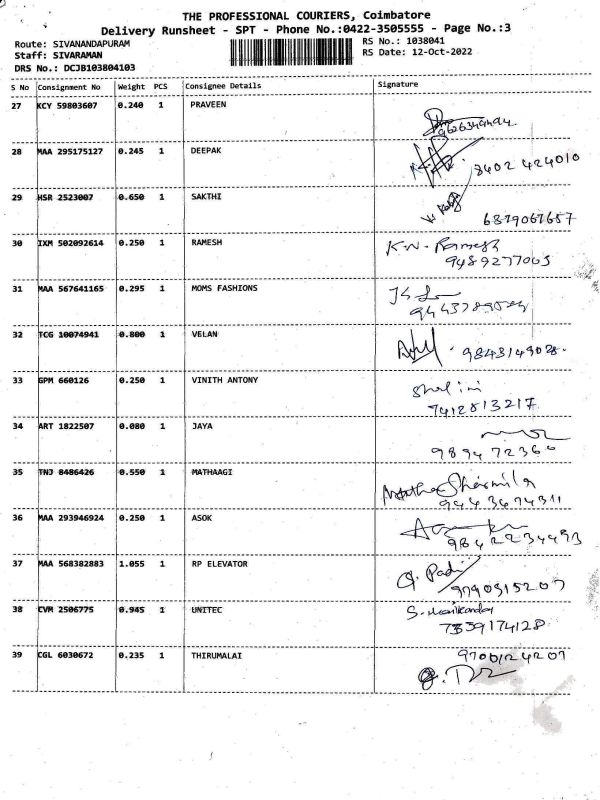 THE PROFESSIONAL COURIERS, Coimbatore
Delivery Runsheet - SPT - Phone No.:0422-3505555 - Page No.:3
Route: SIVANANDAPURAM
Staff: SIVARAMAN
DRS No.: DCJB103804103
RS No.: 1038041
RS Date: 12-Oct-2022
S No Consignment No Weight PCS Consignee Details Signature
27 KCY 59803607 0.240 1 PRAVEEN
9626349494
28 MAA 295175127 0.245 1 DEEPAK
8602 424010
29 HSR 2523007 0.650 1 SAKTHI
6379061657
30 IXM 502092614 0.250 1 RAMESH K.N. Ramesh
9489277003
31 MAA 567641165 0.295 1 MOMS FASHIONS
32 TCG 10074941 0.800 1 VELAN
9843149028.
33 GPM 660126 0.250 1 VINITH ANTONY Shalini
7412813217
34 ART 1822507 0.080 1 JAYA
989472360
35 TNJ 8486426 0.550 1 MATHAAGI
Sharmila
9443674311
36 MAA 293946924 0.250 1 ASOK
9842234493
37 MAA 568382883 1.055 1 RP ELEVATOR
9790315207
38 CVM 2506775 0.945 1 UNITEC S. Manikandan
7339174128
39 CGL 6030672 0.235 1 THIRUMALAI 9700124207